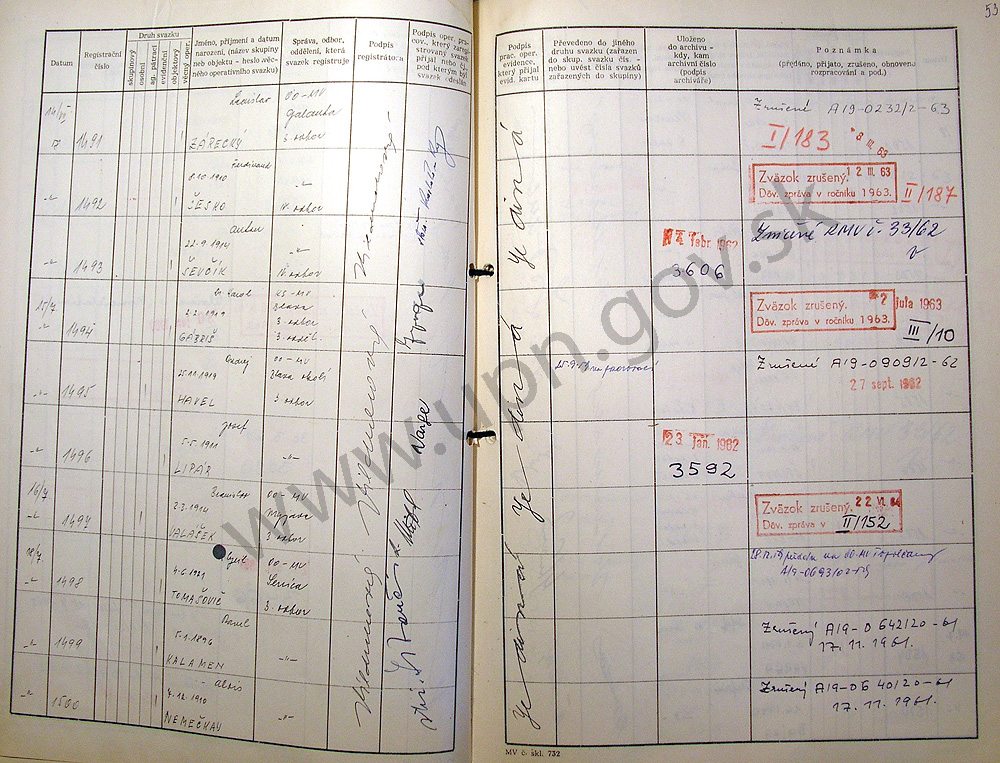 53
Datum
Registrační číslo
Druh svazku
skupinový
osobní
ag. pátrací
evidenční
objektový
dřetený oper.
Jméno, příjmení a datum
narození, (název skupiny
neb objektu - heslo věc-
ného operativního svazku)
Správa, odbor,
oddělení, která
svazek registruje
Podpis
registrátora
Podpis oper. pra-
cov., který zaregi-
strovaný svazek
přijal nebo čj.,
pod kterým byl
svazek odeslán
Podpis
prac. oper.
evidence,
který přijal
evid. kartu
Převedeno do jiného
druhu svazku (zařazen
do skup. svazku čís. -
nebo uvést čísla svazků
zařazených do skupiny)
Uloženo
do archivu -
kdy, kam
archivní číslo
(podpis
archiváře)
Poznámka
(předáno, přijato, zrušeno, obnoveno
rozpracování a pod.)
14/VI
1491
Ladislav
ZÁŘECKÝ
OO-MV
Galanta
3. odbor
Zrušené A19-0232/2-63
I/183
8 III. 63
1492
Ferdinand
8.10.1910
ŠEŠKO
-"-
IV. odbor
Zväzok zrušený. 12 III. 63
Dôv. zpráva v ročníku 1963. II/187
1493
Anton
22.9.1914
ŠEVČÍK
IV. odbor
febr 1962
3606
Zrušené RMV č. 33/62
15/7
1494
Karol
1919
GÁBRIŠ
KS-MV
3. odbor
Zväzok zrušený. 2 jula 1963
Dôv. zpráva v ročníku 1963. III/10
-"-
1495
Ondrej
25.11.1919
HAVEL
OO-MV
3. odbor
Zrušené A19-0909/2-62
27 sept. 1962
-"-
1496
Jozef
5.5.1911
LIPÁR
-"-
23 jan. 1962
3592
16/7
-"-
1497
Branislav
2.3.1914
VALAŠEK
OO-MV
Myjava
3 odbor
Zväzok zrušený. 22 VI. 64
Dôv. zpráva v II/152
18/7
-"-
1498
4.6.1921
TOMAŠOVIČ
OO-MV
Senica
3. odbor
OO-MV Topolčany
-"-
1499
Pavel
5.1.1896
KALAMEN
-"-
Zrušený A19-0642/20-61
17.11.1961.
-"-
1500
Alois
4.12.1910
NEMEČKAY
-"-
Zrušený A19-0640/20-61
17.11.1961.
MV č. skl. 732
www.upn.gov.sk